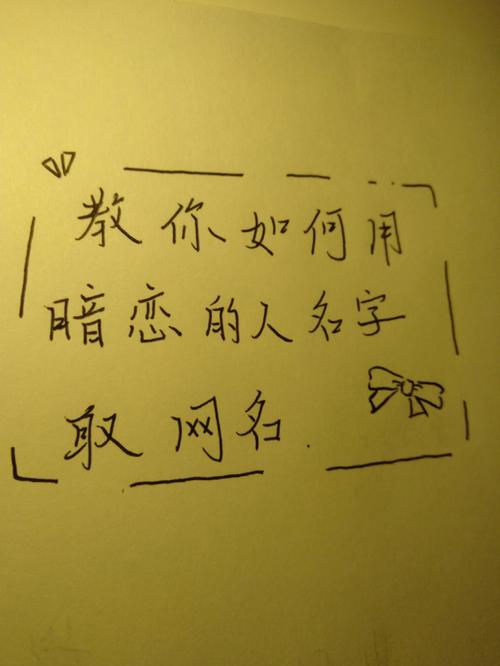 教你如何用
暗恋的人名字
取网名.